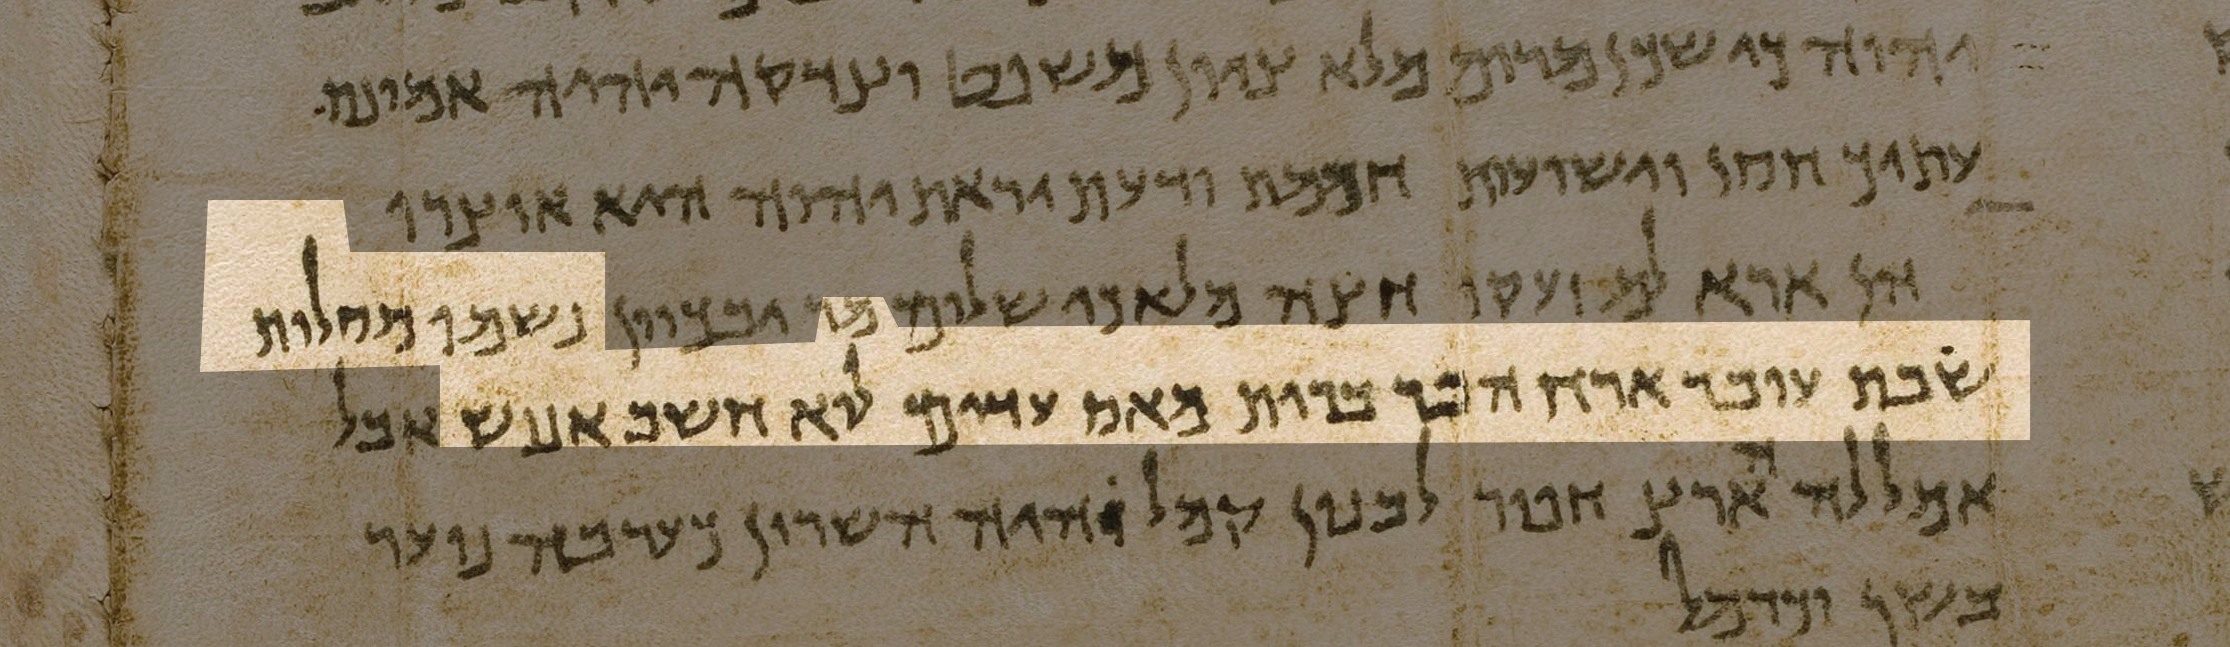 יהוה כי שכן מרום מלא ציון משפט וצדקה והיה אמונת
עתיך חסן וישועות חכמת ודעת יראת יהוה היא אוצרו
הן ארא לם זעקו חצה מלאכי שלום מר יבכיון נשמו מסלות
שבת עובר ארח הפר ברית מאס עדים לא חשב אנוש אבל
אמללה הארץ חפר לבנן קמל והיה השרון כערבה נוער
בשן וכרמל